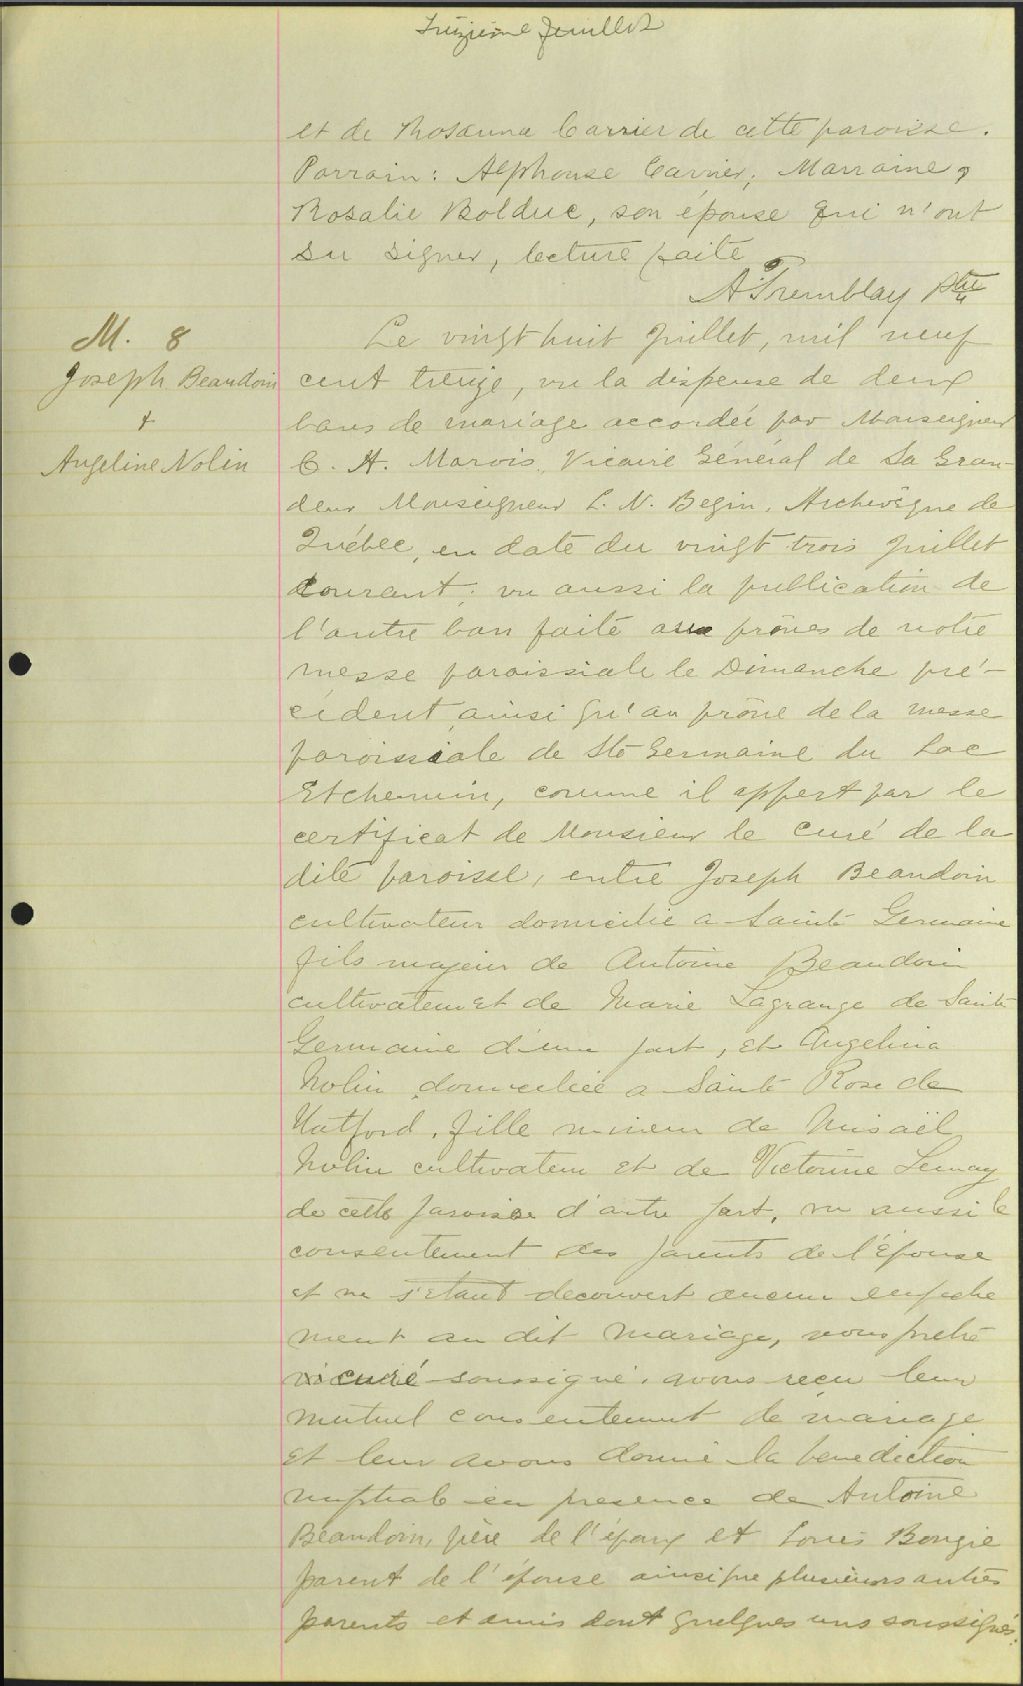 Treizième feuillet
et de Rosanna Carrier de cette paroisse.
Parrain: Alphonse Carrier, Marraine,
Rosalie Bolduc, son épouse qui n'ont
su signer, lecture faite
A Tremblay Ptre
M. 8
Joseph Beaudoin
+
Angeline Nolin
Le vingt huit Juillet, mil neuf
cent treize, vu la dispense de deux
bans de mariage accordée par Monseigneur
C. A. Marois, Vicaire Général de Sa Gran-
deur Monseigneur L. N. Begin, Archevêque de
Québec, en date du vingt trois Juillet
courant; vu aussi la publication de
l'autre ban faite aux prônes de notre
messe paroissiale le Dimanche pré-
cédent ainsi qu'au prône de la messe
paroissiale de Ste Germaine du Lac
Etchemin, comme il appert par le
certificat de Monsieur le Curé de la
dite paroisse, entre Joseph Beaudoin
cultivateur domicilié a Sainte Germaine
fils majeur de Antoine Beaudoin
cultivateur et de Marie Lagrange de Sainte
Germaine d'une part, et Angelina
Nolin domiciliée a Sainte Rose de
Watford, fille mineur de Misaël
Nolin cultivateur et de Victorine Lemay
de cette paroisse d'autre part, vu aussi le
consentement des parents de l'Épouse
et ne s'etant decouvert aucun empeche
ment au dit mariage, nous prêtre
curé soussigné, avons reçu leur
mutuel consentement de mariage
et leur avons donné la benediction
nuptiale en presence de Antoine
Beaudoin, père de l'époux et Louis Bougie
parent de l'épouse ainsi que plusieurs autres
parents et amis dont quelques uns soussignés.